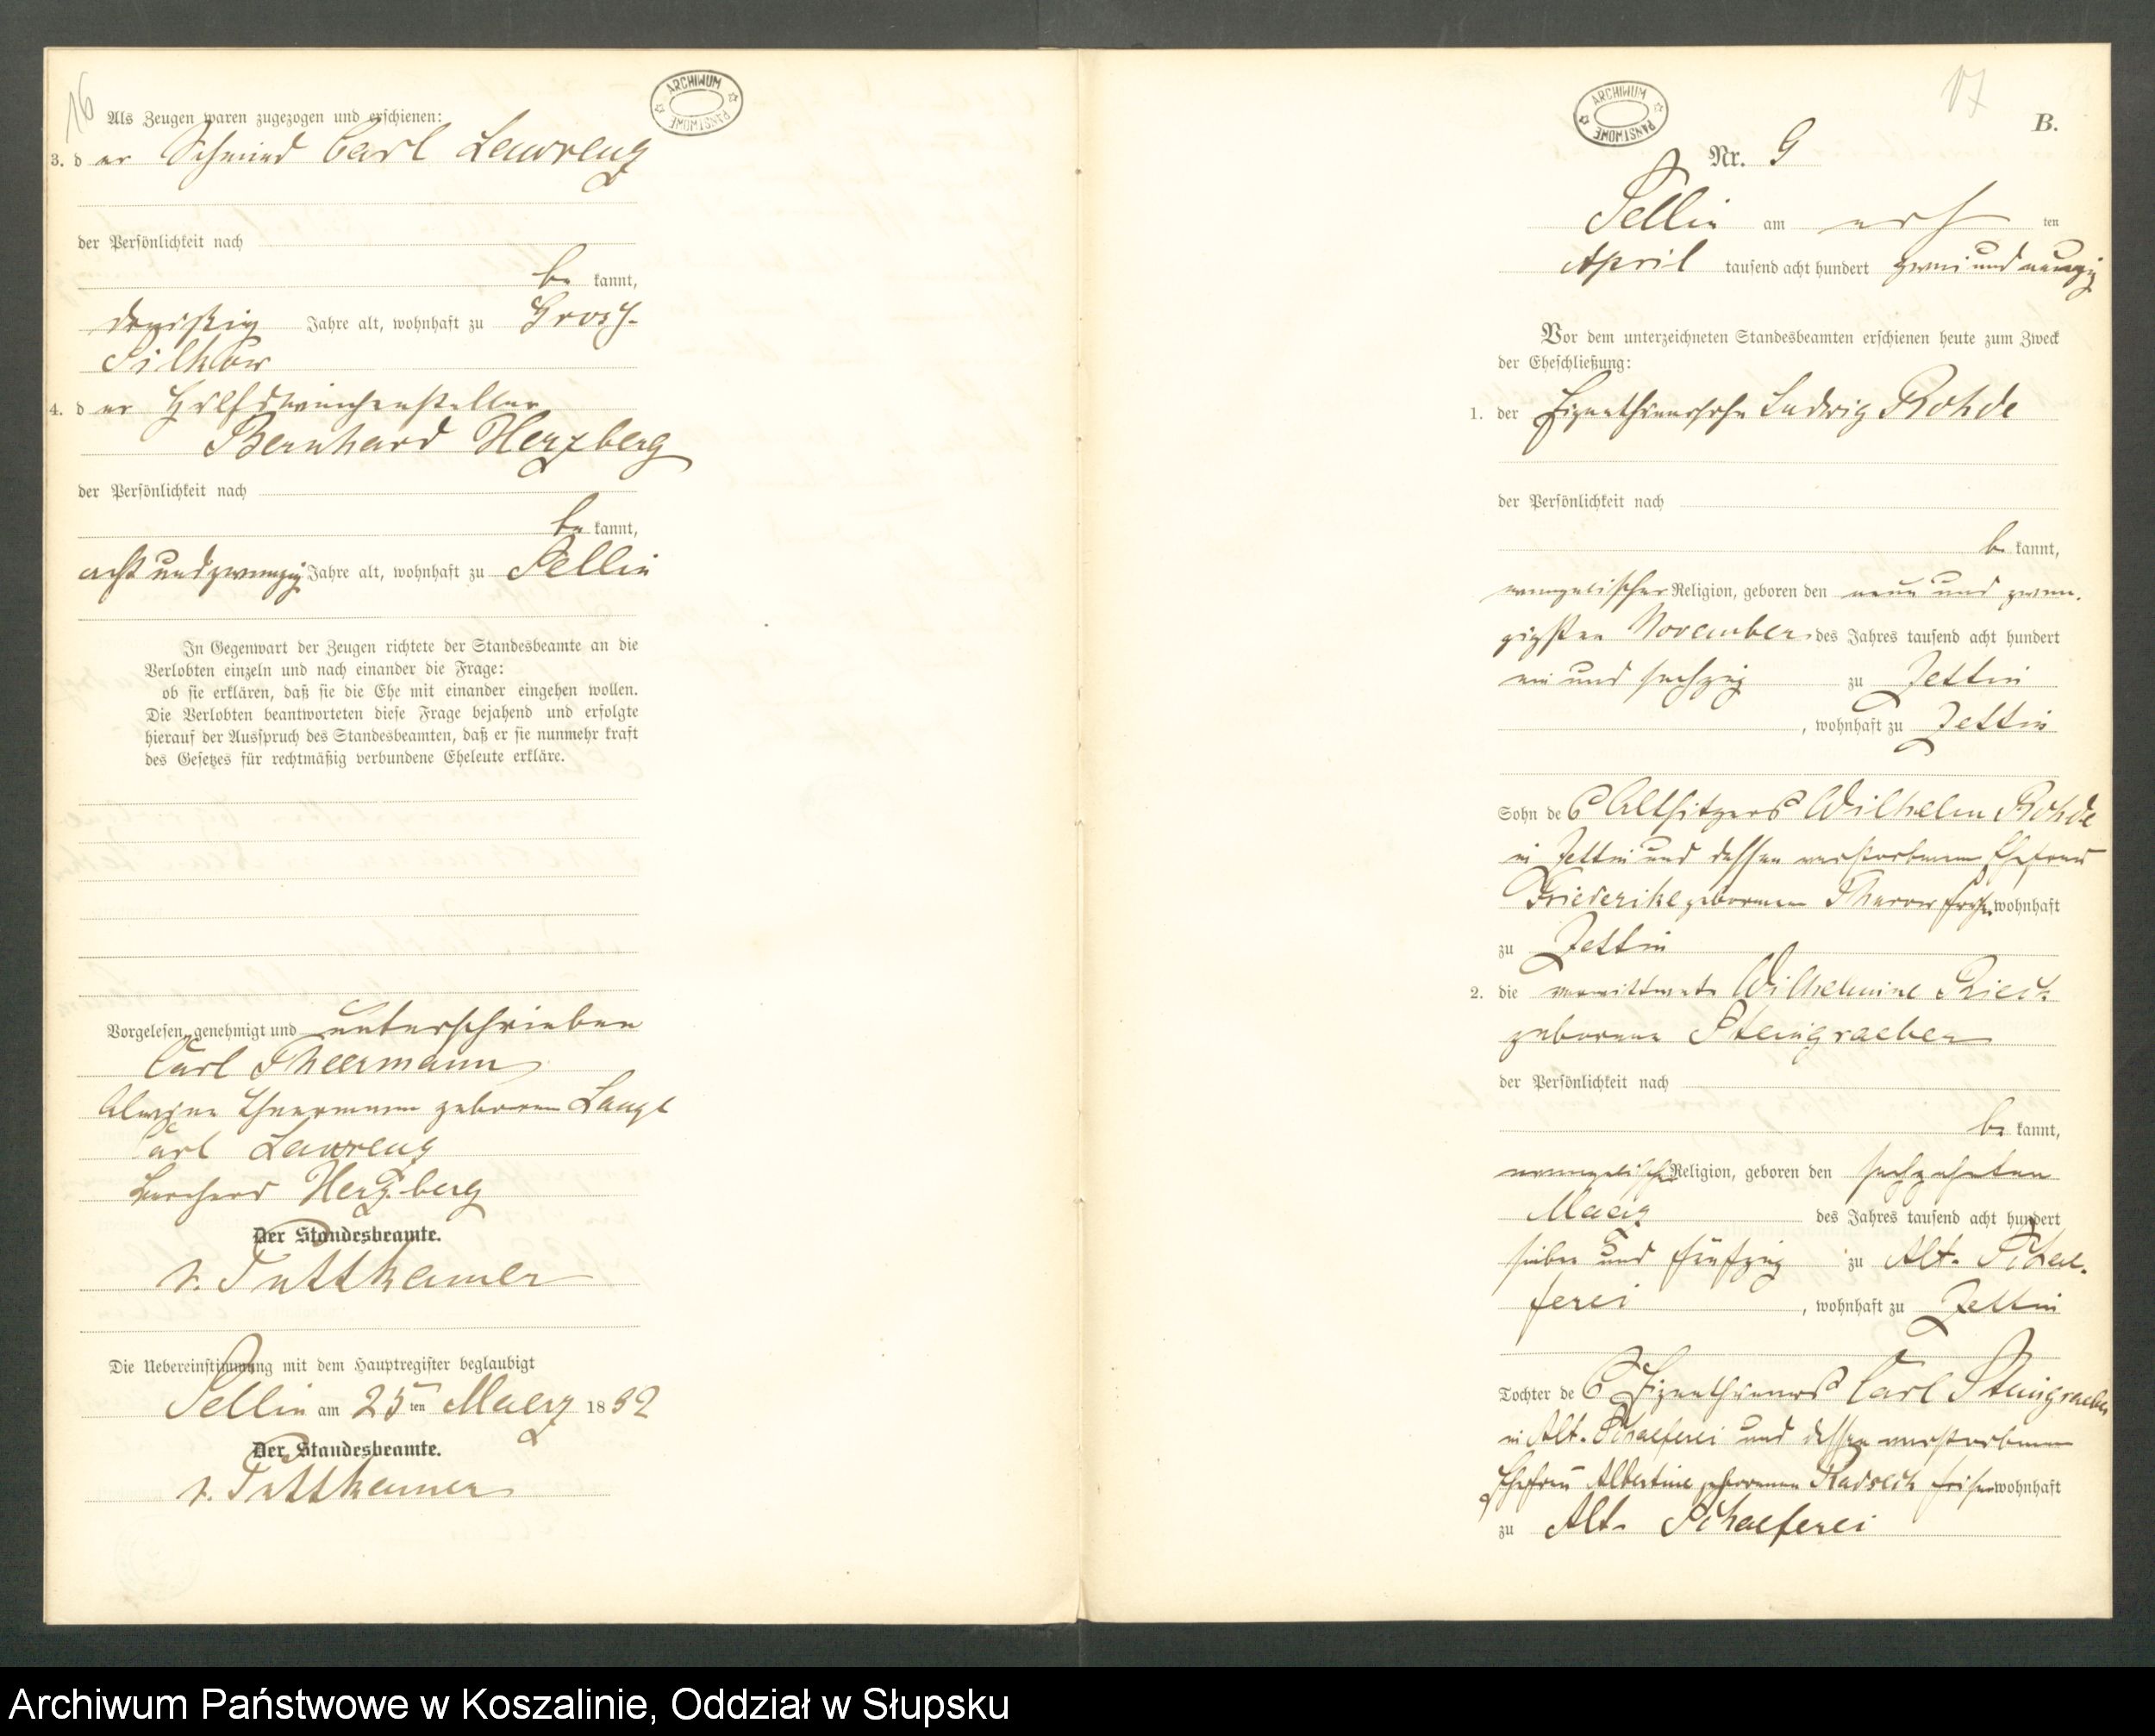 16
ARCHIWUM PAŃSTWOWE
Als Zeugen waren zugezogen und erschienen:
3. d er Schmied Carl Lawrenz
der Persönlichkeit nach
be kannt,
dreißig Jahre alt, wohnhaft zu Gross-
Silkow
4. d er Hülfsweichensteller
Bernhard Herzberg
der Persönlichkeit nach
be kannt,
acht und zwanzig Jahre alt, wohnhaft zu Sellin
In Gegenwart der Zeugen richtete der Standesbeamte an die
Verlobten einzeln und nach einander die Frage:
ob sie erklären, daß sie die Ehe mit einander eingehen wollen.
Die Verlobten beantworteten diese Frage bejahend und erfolgte
hierauf der Ausspruch des Standesbeamten, daß er sie nunmehr kraft
des Gesetzes für rechtmäßig verbundene Eheleute erkläre.
Vorgelesen, genehmigt und unterschrieben
Carl Theermann
Alwine Theermann geborene Lange
Carl Lawrenz
Herzberg
Der Standesbeamte.
v. Puttkamer
Die Uebereinstimmung mit dem Hauptregister beglaubigt
Sellin am 25 ten Maerz 18 92
Der Standesbeamte.
v. Puttkamer
17
ARCHIWUM PAŃSTWOWE
B.
Nr. 9
Sellin am ach ten
April tausend acht hundert zwei und neunzig
Vor dem unterzeichneten Standesbeamten erschienen heute zum Zweck
der Eheschließung:
1. der Eigenthümersohn Ludwig Rohde
der Persönlichkeit nach
be kannt,
evangelischer Religion, geboren den neun und zwan-
zigsten November des Jahres tausend acht hundert
ein und sechzig zu Zettin
, wohnhaft zu Zettin
Sohn de s Altsitzers Wilhelm Rohde
in Zettin und dessen verstorbenen Ehefrau
Friederike geborenen Tharow früher wohnhaft
zu Zettin
2. die verwittwete Wilhelmine Rieck
geborene Steingraeber
der Persönlichkeit nach
be kannt,
evangelischer Religion, geboren den sechzehnten
Maerz des Jahres tausend acht hundert
sieben und fünfzig zu Alt-Schae-
ferei , wohnhaft zu Zettin
Tochter de s Eigenthümers Carl Steingraeber
in Alt-Schaeferei und dessen verstorbenen
Ehefrau Albertine geborenen Radseck früher wohnhaft
zu Alt-Schaeferei
Archiwum Państwowe w Koszalinie, Oddział w Słupsku